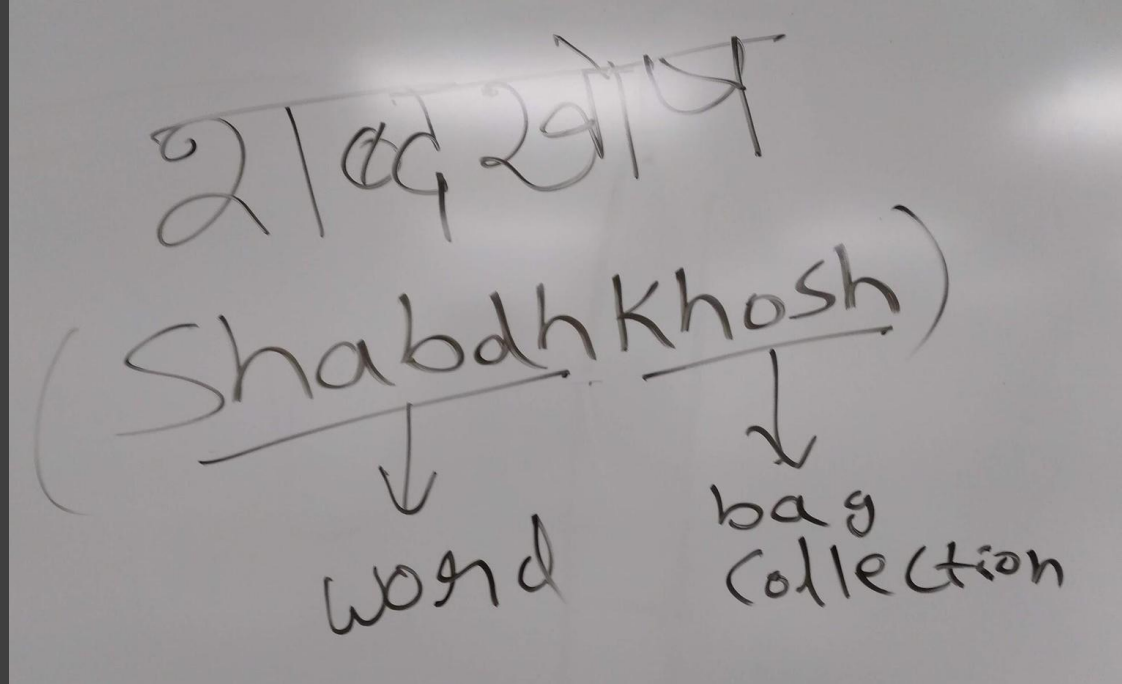 शब्दखोप
(Shabdhkhosh)
word bag
collection